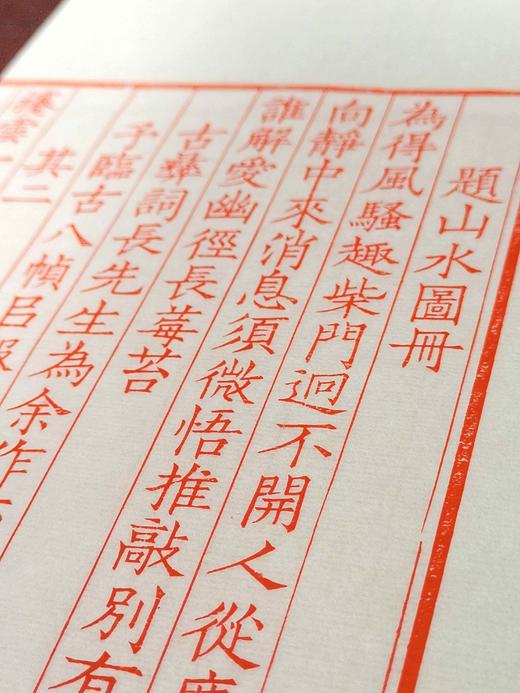 題山水圖冊
為得風騷趣柴門迥不開人從
向靜中來消息須微悟推敲別有
誰解愛幽徑長莓苔
古彝詞長先生為余作
子臨古八幀㠯
其二